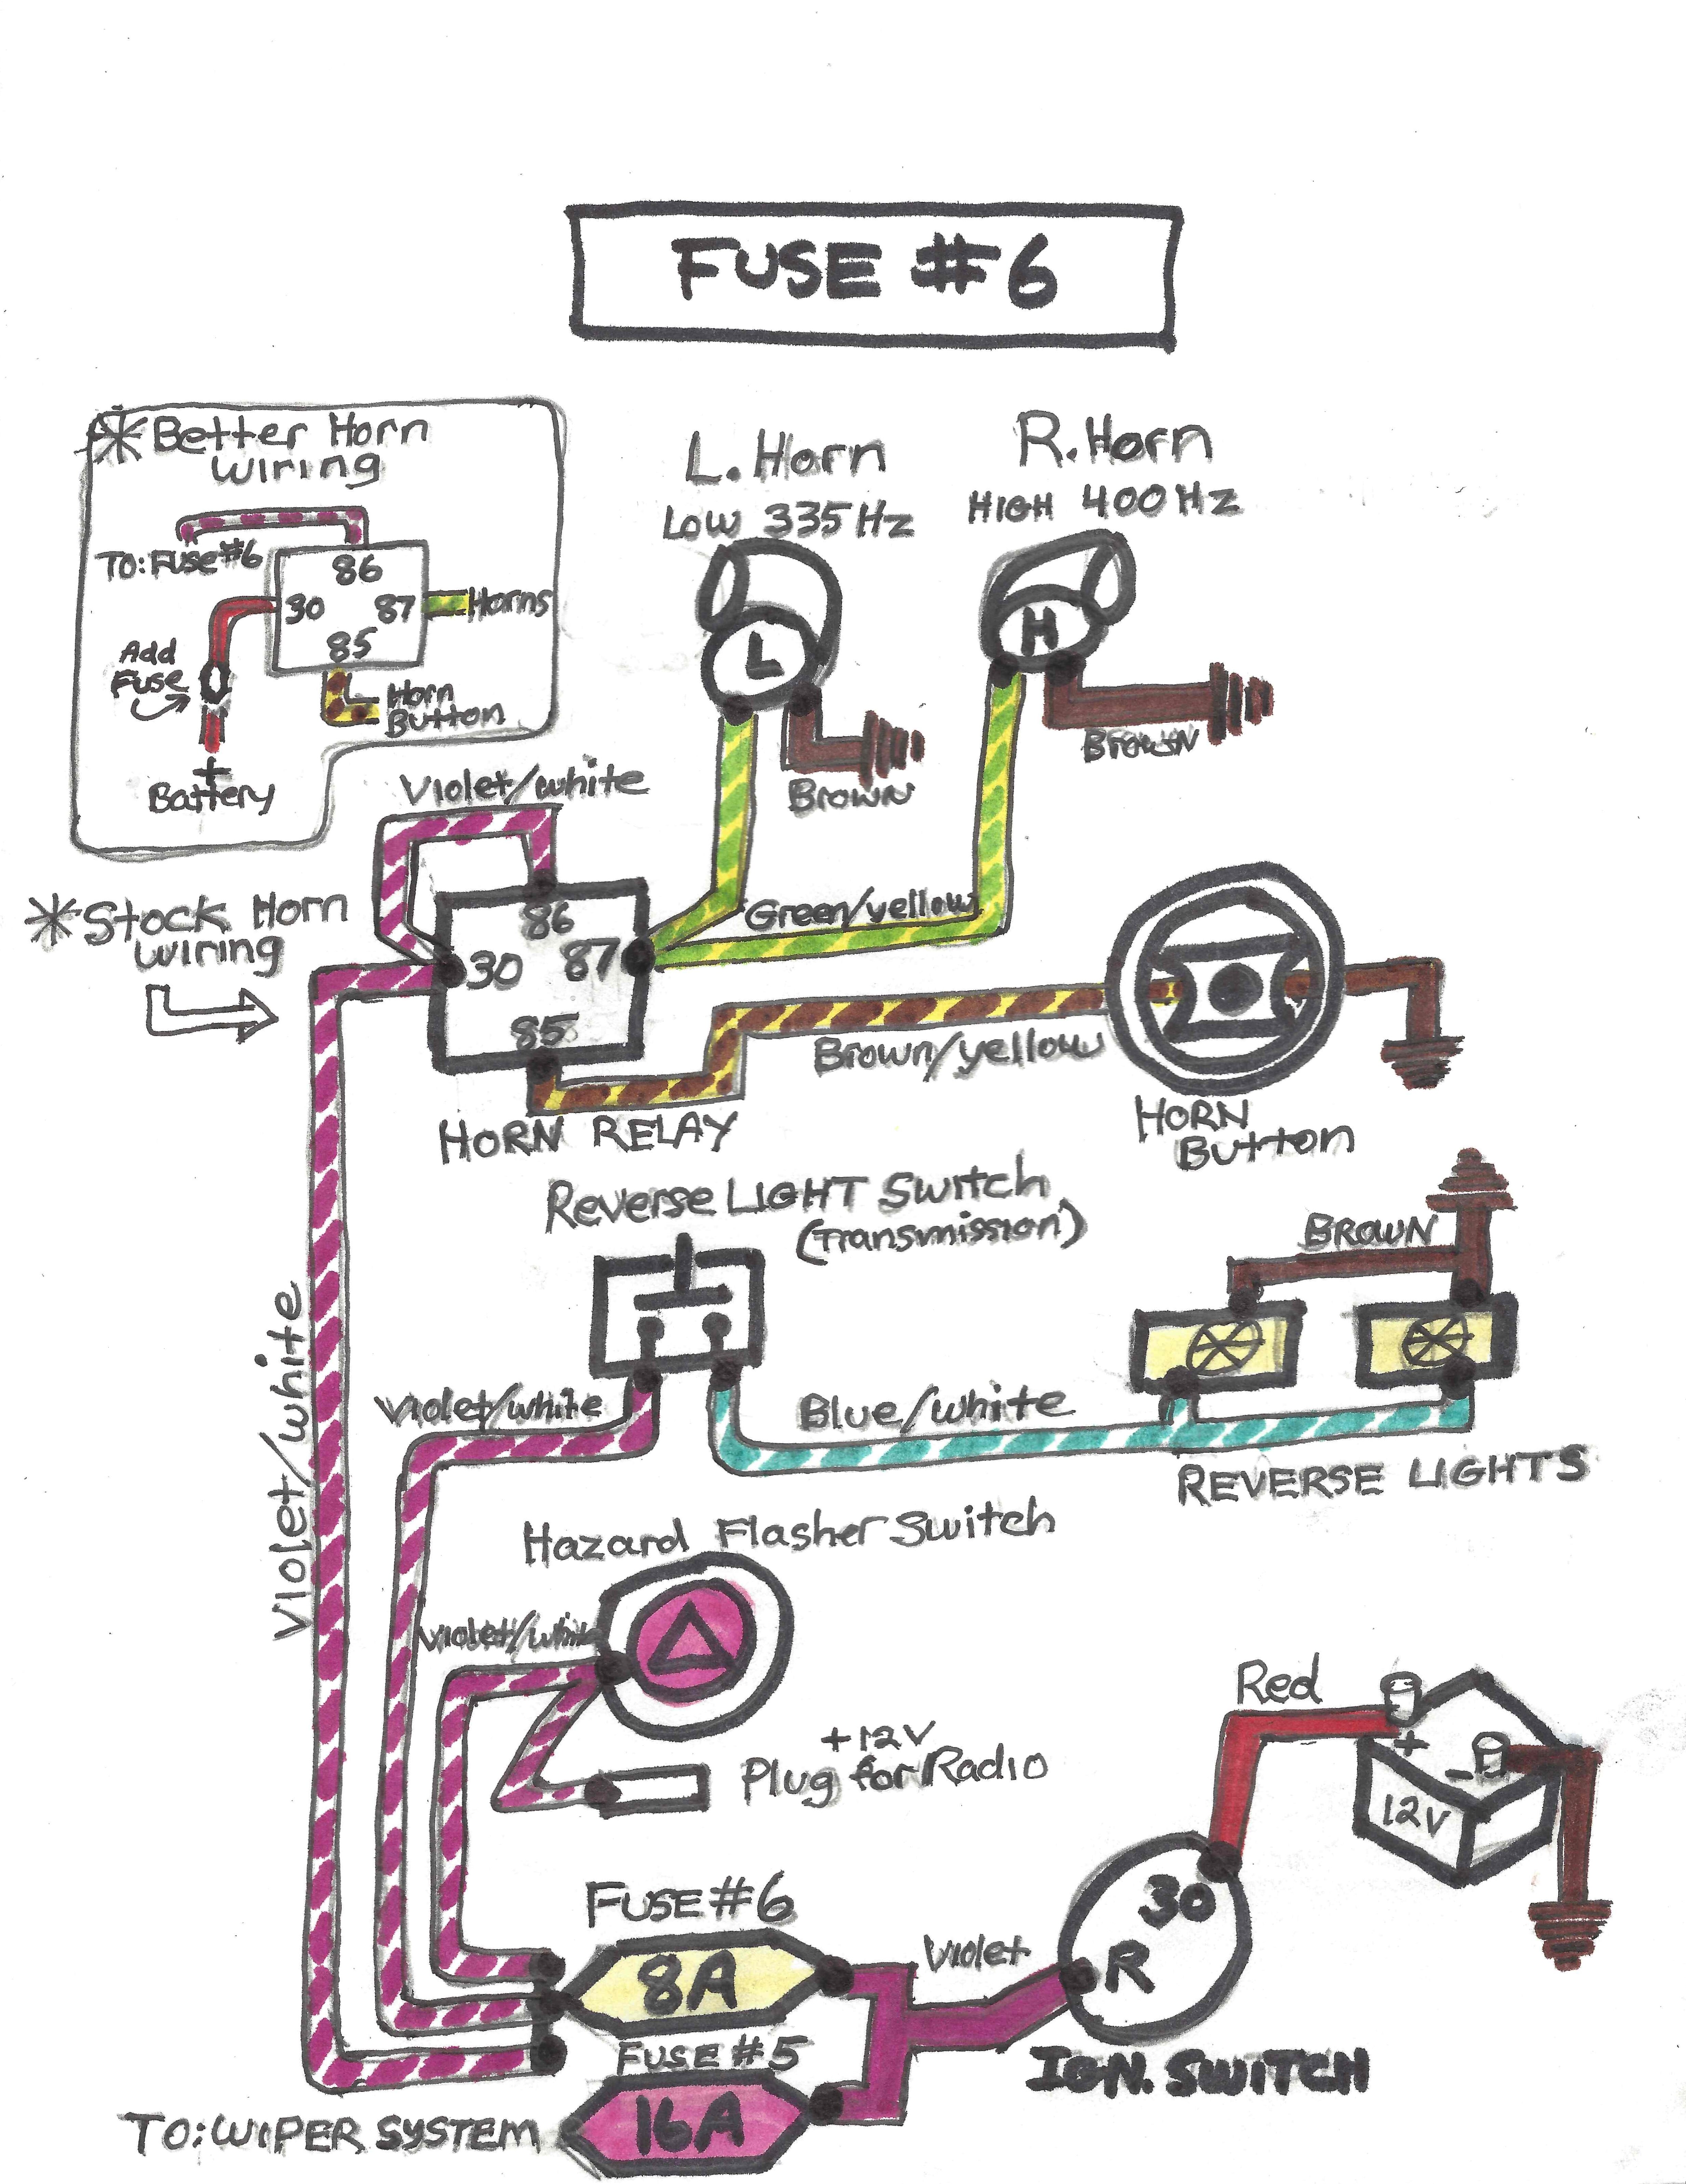 FUSE #6
*Better Horn
wiring
TO: Fuse #6
86
30
87
Horns
85
Add
Fuse
Horn
Button
+
Battery
L. Horn
Low 335 Hz
R. Horn
HIGH 400 Hz
L
H
Brown
Brown
Violet/white
*Stock Horn
wiring
86
30
87
85
Green/yellow
Brown/yellow
HORN RELAY
HORN
Button
Reverse LIGHT Switch
(Transmission)
BROWN
Violet/white
Violet/white
Blue/white
REVERSE LIGHTS
Hazard Flasher Switch
Violet/white
+12V
Plug for Radio
Red
+
-
12V
FUSE #6
8A
Violet
30
R
IGN. SWITCH
FUSE #5
16A
TO: WIPER SYSTEM